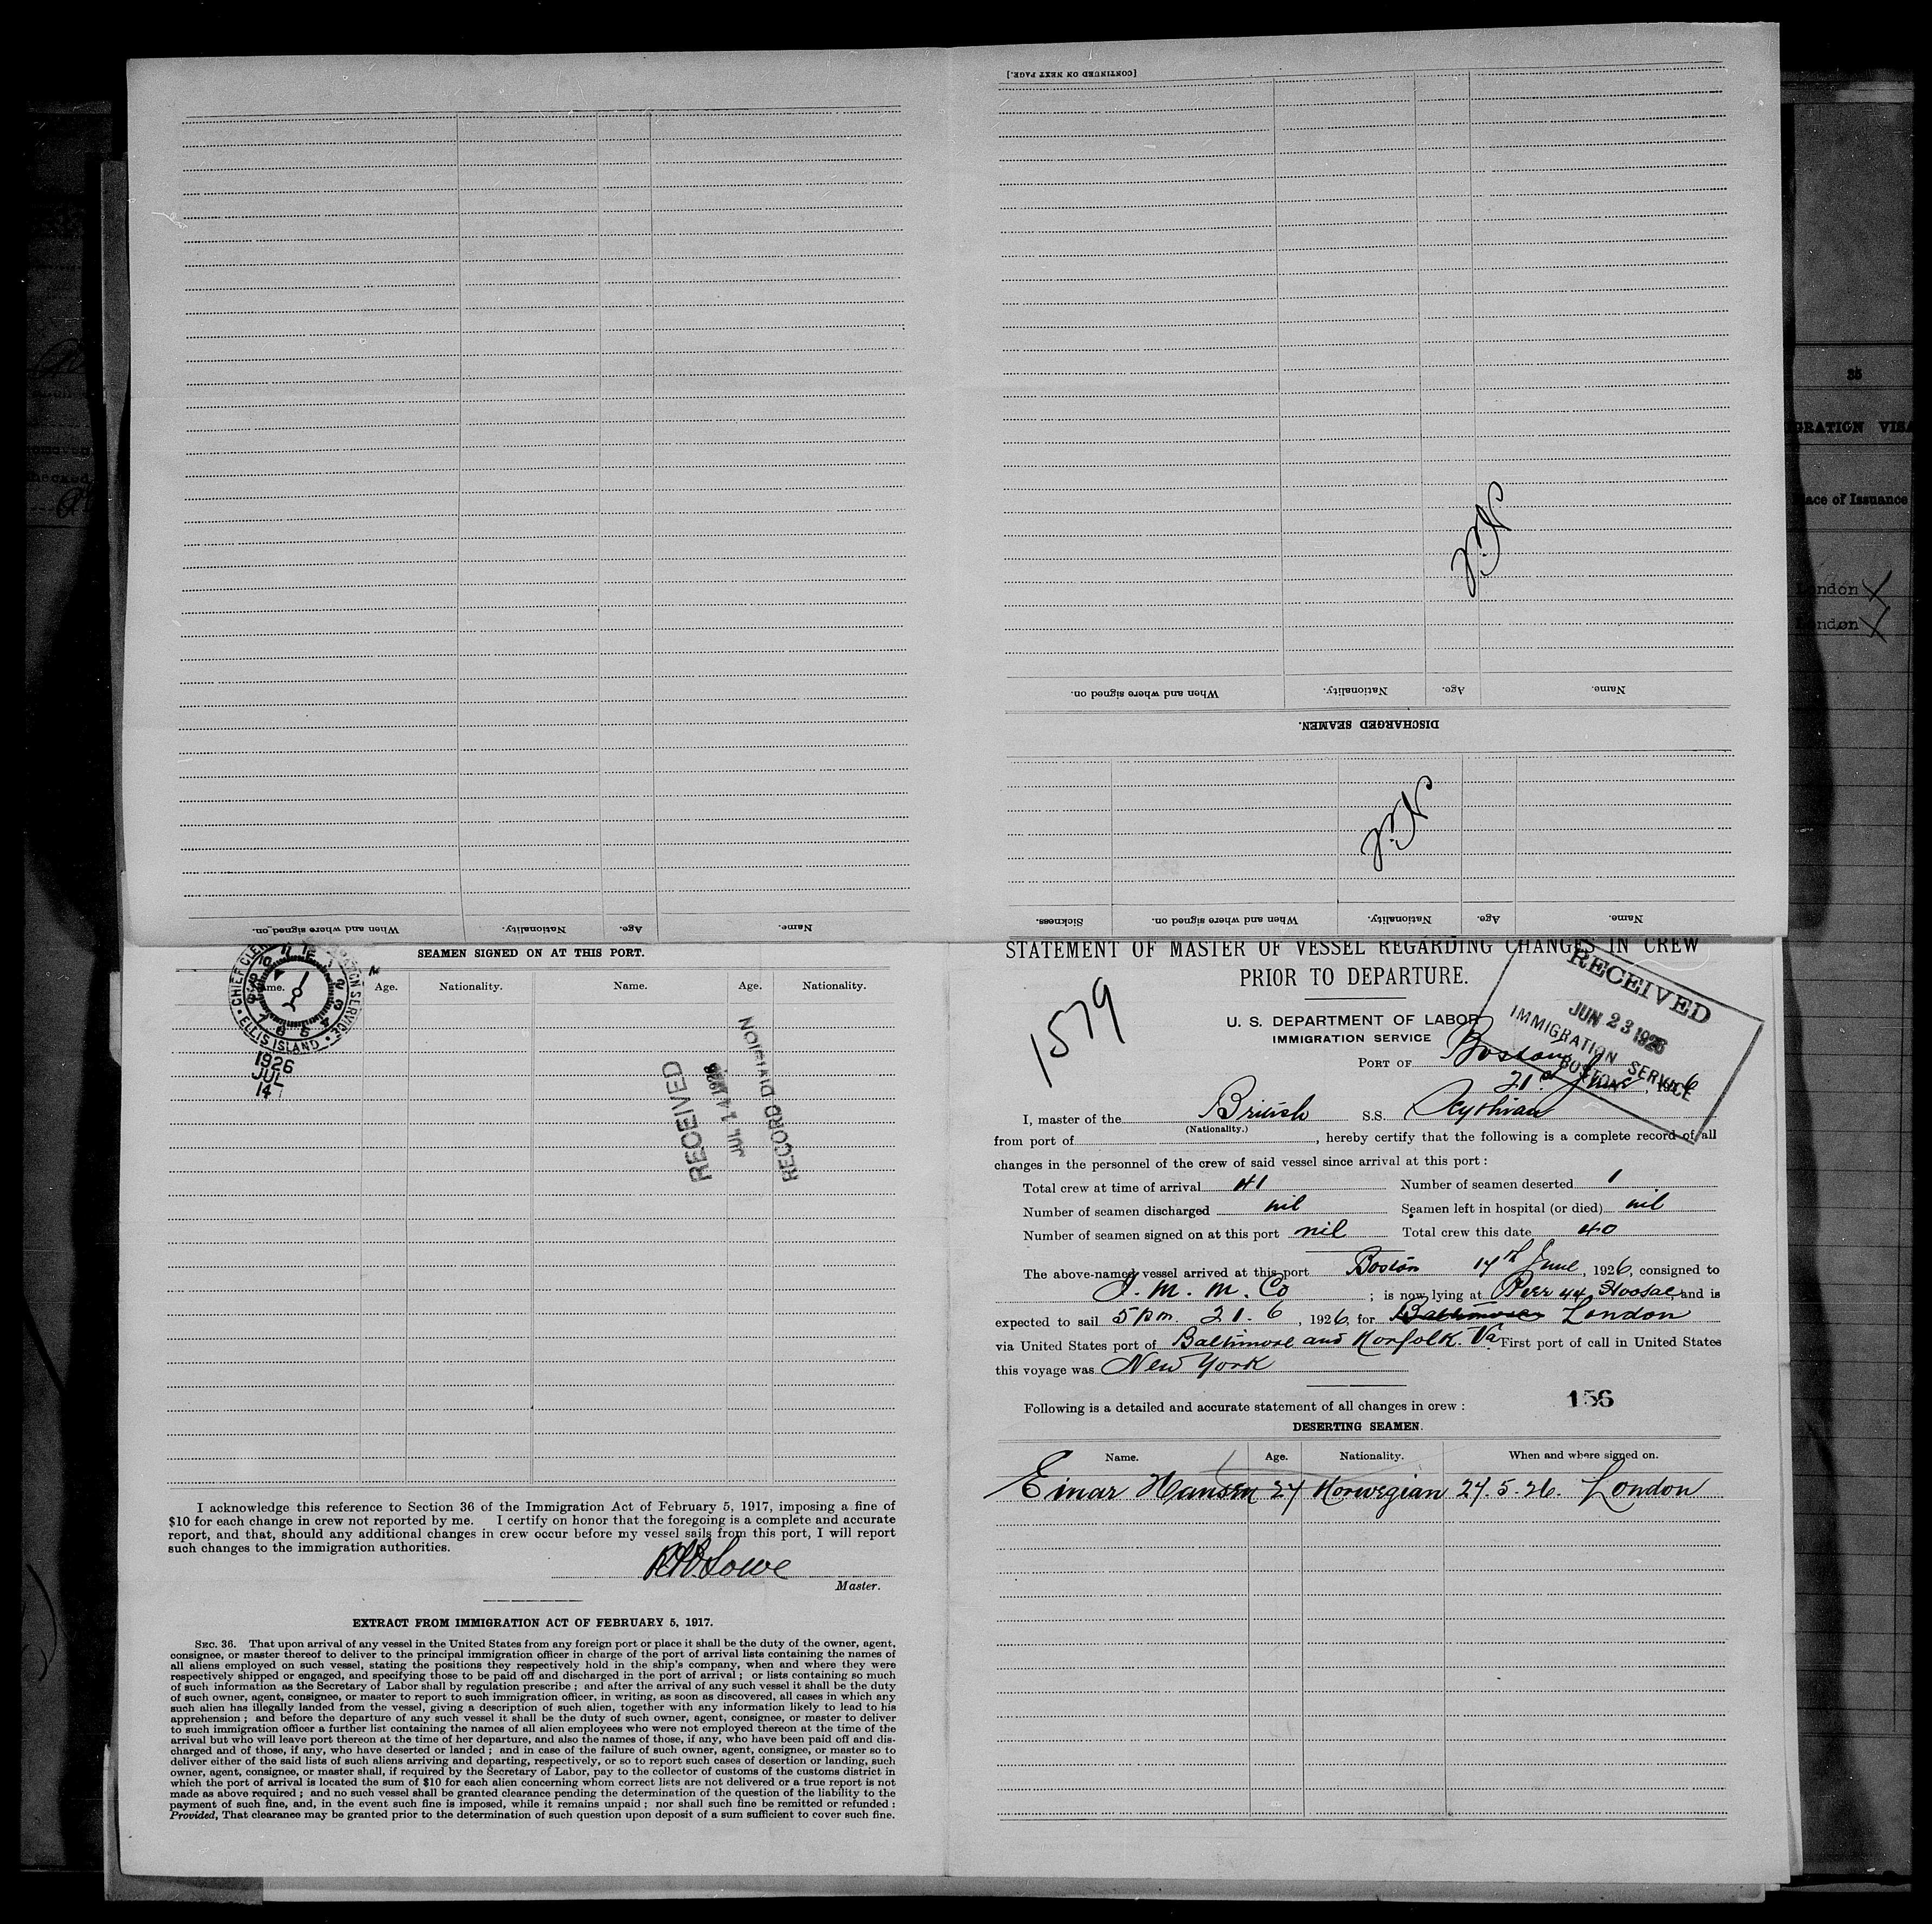 [CONTINUED ON NEXT PAGE.]
Nil
When and where signed on. Nationality. Age. Name.
DISCHARGED SEAMEN.
Nil
Sickness. When and where signed on. Nationality. Age. Name.
When and where signed on. Nationality. Age. Name.
SEAMEN SIGNED ON AT THIS PORT.
Name. Age. Nationality. Name. Age. Nationality.
CHIEF CLERK
ELLIS ISLAND
1926
JUL
14
RECEIVED
JUL 14 1926
RECORD DIVISION
I acknowledge this reference to Section 36 of the Immigration Act of February 5, 1917, imposing a fine of
$10 for each change in crew not reported by me. I certify on honor that the foregoing is a complete and accurate
report, and that, should any additional changes in crew occur before my vessel sails from this port, I will report
such changes to the immigration authorities.
Lowe
Master.
EXTRACT FROM IMMIGRATION ACT OF FEBRUARY 5, 1917.
SEC. 36. That upon arrival of any vessel in the United States from any foreign port or place it shall be the duty of the owner, agent,
consignee, or master thereof to deliver to the principal immigration officer in charge of the port of arrival lists containing the names of
all aliens employed on such vessel, stating the positions they respectively hold in the ship's company, when and where they were
respectively shipped or engaged, and specifying those to be paid off and discharged in the port of arrival; or lists containing so much
of such information as the Secretary of Labor shall by regulation prescribe; and after the arrival of any such vessel it shall be the duty
of such owner, agent, consignee, or master to report to such immigration officer, in writing, as soon as discovered, all cases in which any
such alien has illegally landed from the vessel, giving a description of such alien, together with any information likely to lead to his
apprehension; and before the departure of any such vessel it shall be the duty of such owner, agent, consignee, or master to deliver
to such immigration officer a further list containing the names of all alien employees who were not employed thereon at the time of the
arrival but who will leave port thereon at the time of her departure, and also the names of those, if any, who have been paid off and dis-
charged and of those, if any, who have deserted or landed; and in case of the failure of such owner, agent, consignee, or master so to
deliver either of the said lists of such aliens arriving and departing, respectively, or so to report such cases of desertion or landing, such
owner, agent, consignee, or master shall, if required by the Secretary of Labor, pay to the collector of customs of the customs district in
which the port of arrival is located the sum of $10 for each alien concerning whom correct lists are not delivered or a true report is not
made as above required; and no such vessel shall be granted clearance pending the determination of the question of the liability to the
payment of such fine, and, in the event such fine is imposed, while it remains unpaid; nor shall such fine be remitted or refunded:
Provided, That clearance may be granted prior to the determination of such question upon deposit of a sum sufficient to cover such fine.
STATEMENT OF MASTER OF VESSEL REGARDING CHANGES IN CREW
PRIOR TO DEPARTURE.
1579
U. S. DEPARTMENT OF LABOR
IMMIGRATION SERVICE
RECEIVED
JUN 23 1926
IMMIGRATION SERVICE
BOSTON
PORT OF Boston
21st June, 1926
I, master of the British S.S. Scythian
(Nationality.)
from port of , hereby certify that the following is a complete record of all
changes in the personnel of the crew of said vessel since arrival at this port:
Total crew at time of arrival 41 Number of seamen deserted 1
Number of seamen discharged nil Seamen left in hospital (or died) nil
Number of seamen signed on at this port nil Total crew this date 40
The above-named vessel arrived at this port Boston 17th June, 1926, consigned to
I. M. M. Co ; is now lying at Pier 44 Hoosac, and is
expected to sail 5 pm. 21. 6, 1926, for Baltimore London
via United States port of Baltimore and Norfolk. Va. First port of call in United States
this voyage was New York
156
Following is a detailed and accurate statement of all changes in crew:
DESERTING SEAMEN.
Name. Age. Nationality. When and where signed on.
Einar Hansen 27 Norwegian 27.5.26. London
35
GRATION VISA
Place of Issuance
London
London